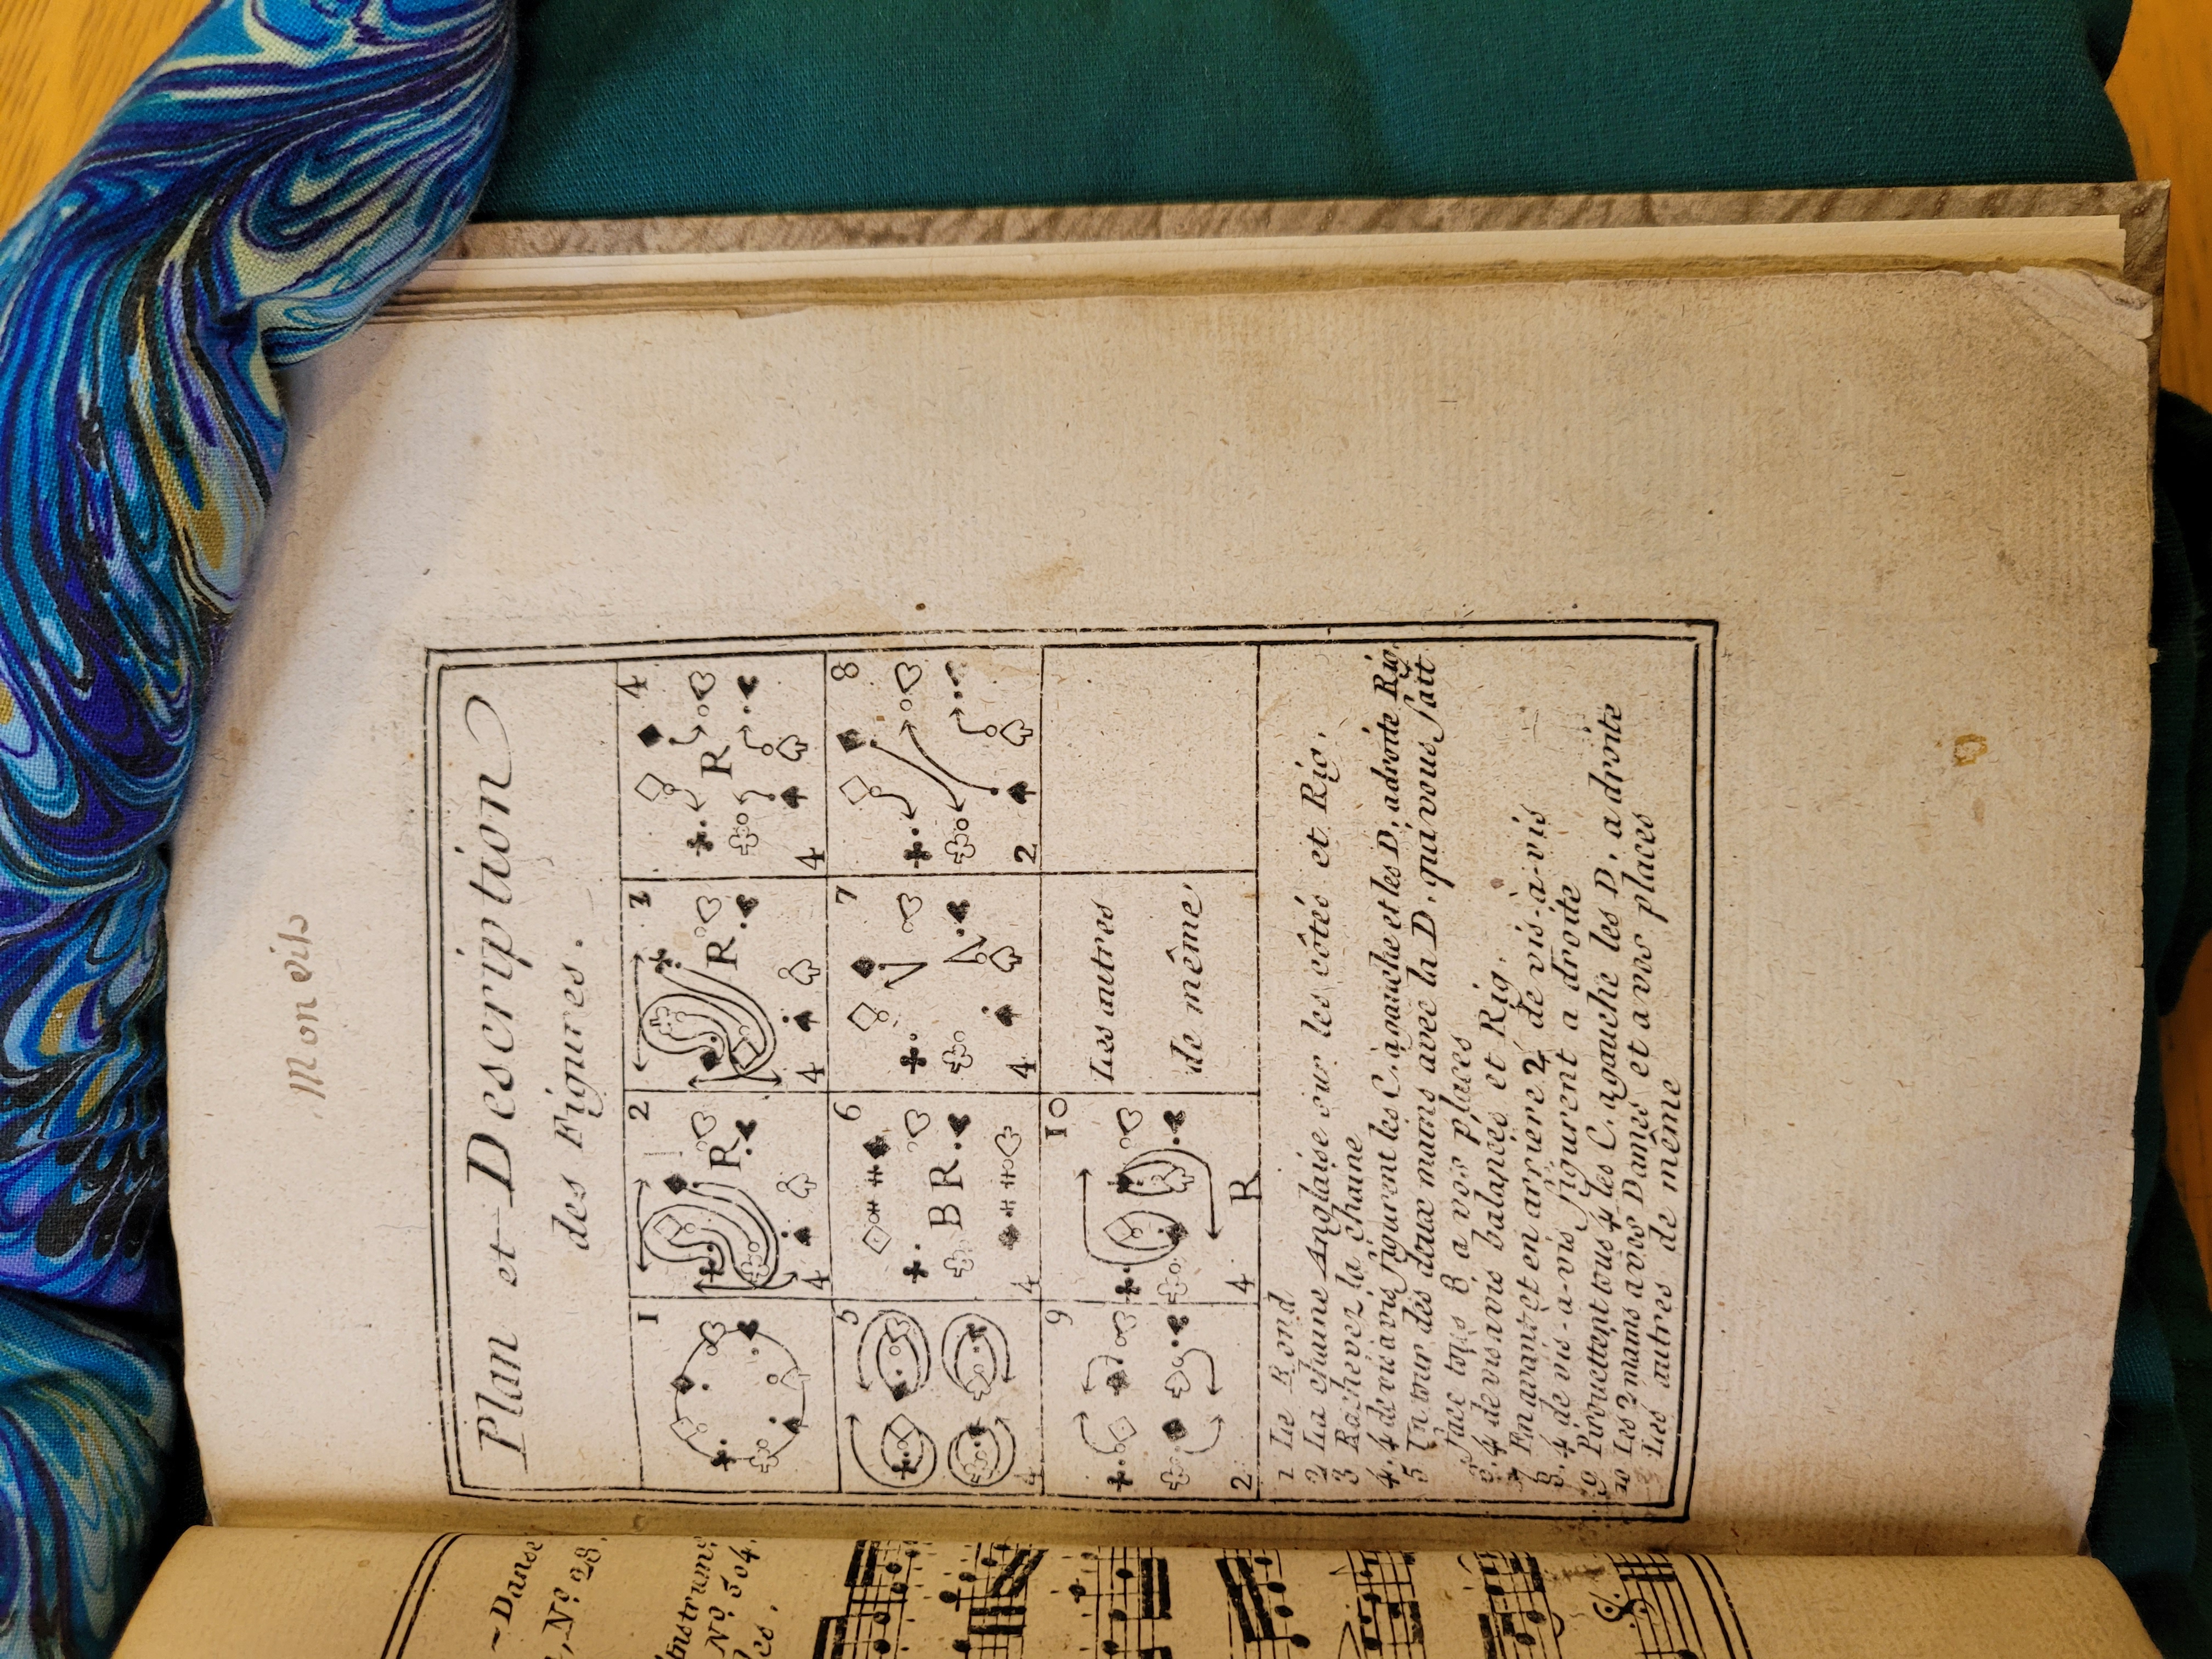 Mon vis
Plan et Description
des Figures.
1
2
R.
4
3
R.
4
4
R
4
5
4
6
B R.
4
7
4
8
2
9
2
10
R
4
Les autres
de même
1 Le Rond
2 La chaine Anglaise sur les côtés et Rig.
3 Rachevez la chaine
4. 4 de vis a vis figurent les C. a gauche et les D. a droite Rig.
5 Un tour des deux mains avec la D. qui vous fait
face tous 8 a vos places
6. 4 de vis a vis balancés et Rig.
7 En avant et en arriere 2 de vis-à-vis
8. 4 de vis-a-vis figurent a droite
9 Pirouettent tous 4 les C. a gauche les D. a droite
10 Les 2 mains a vos Dames et a vos places
Les autres de même
~Danse
, Nº 28.
Instrum.
Nº 504.